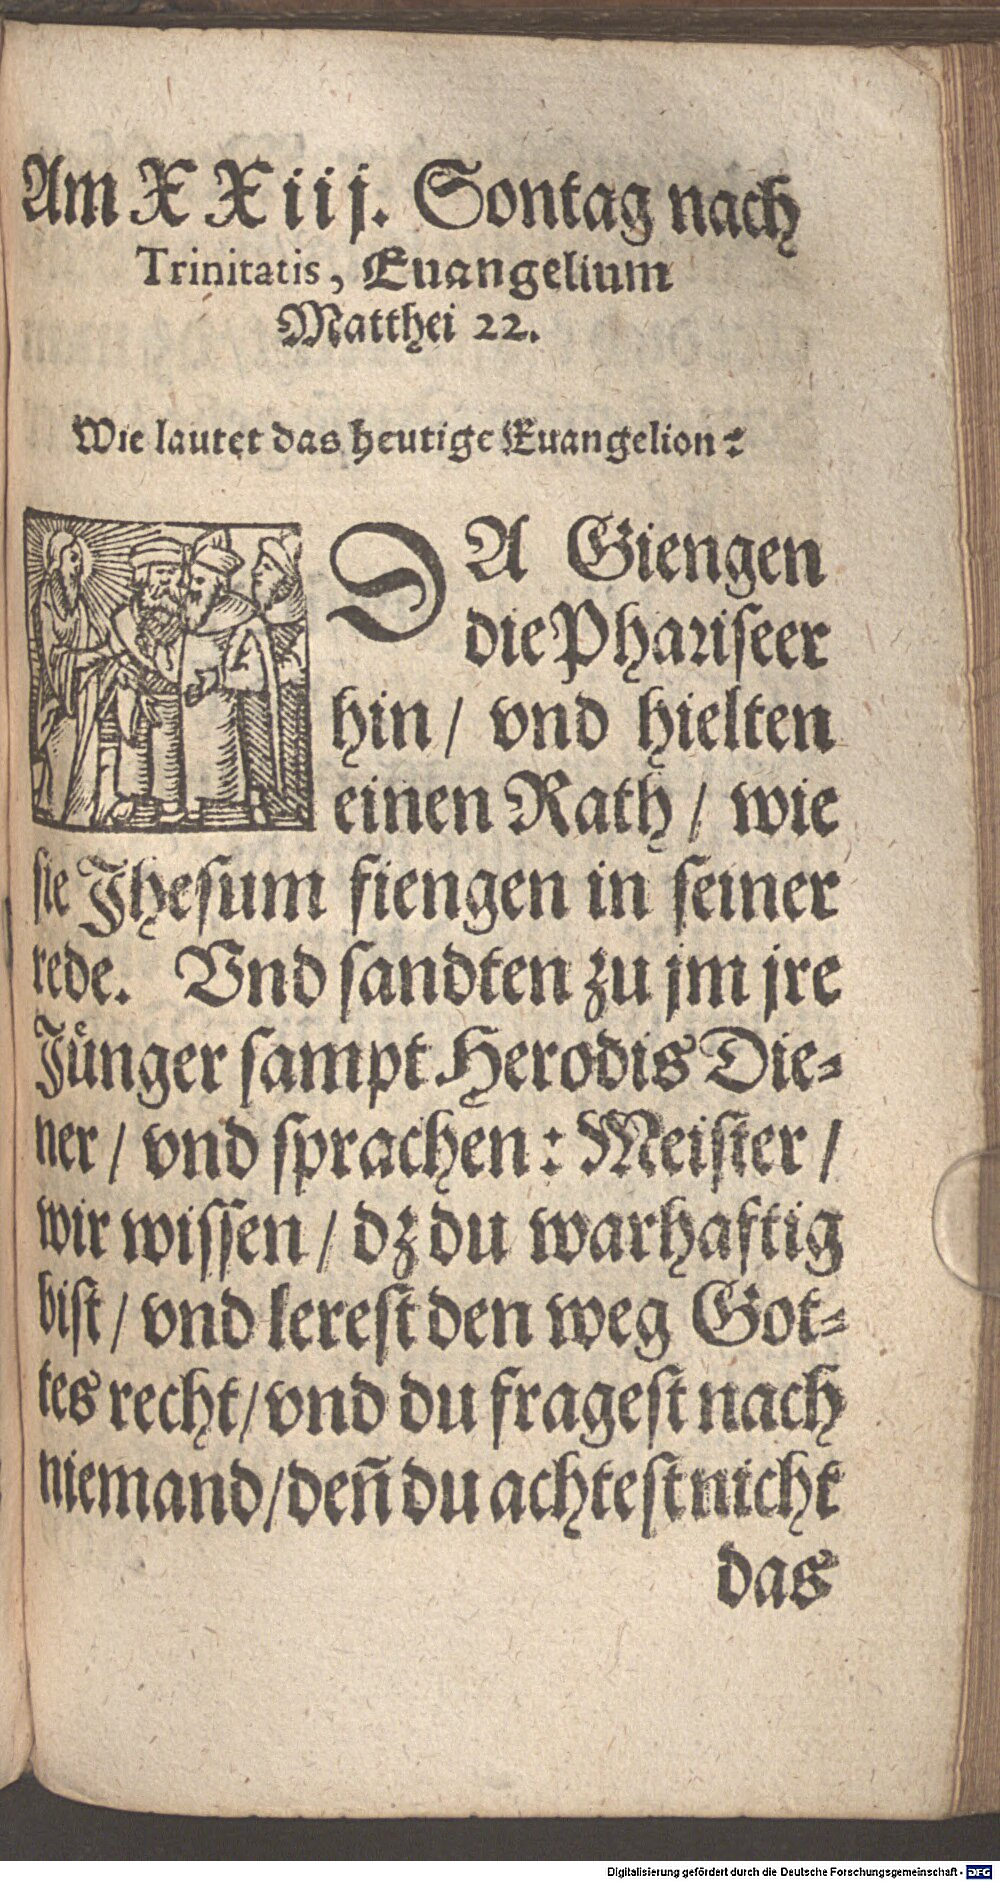 Am XXiij. Sontag nach
Trinitatis, Euangelium
Matthei 22.
Wie lautet das heutige Euangelion?
DA Giengen
die Phariseer
hin / vnd hielten
einen Rath / wie
sie Jhesum fiengen in seiner
rede. Vnd sandten zu jm jre
Jůnger sampt Herodis Die-
ner / vnd sprachen: Meister /
wir wissen / dz du warhaftig
bist / vnd lerest den weg Got-
tes recht / vnd du fragest nach
niemand / deñ du achtest nicht
das
Digitalisierung gefördert durch die Deutsche Forschungsgemeinschaft - DFG